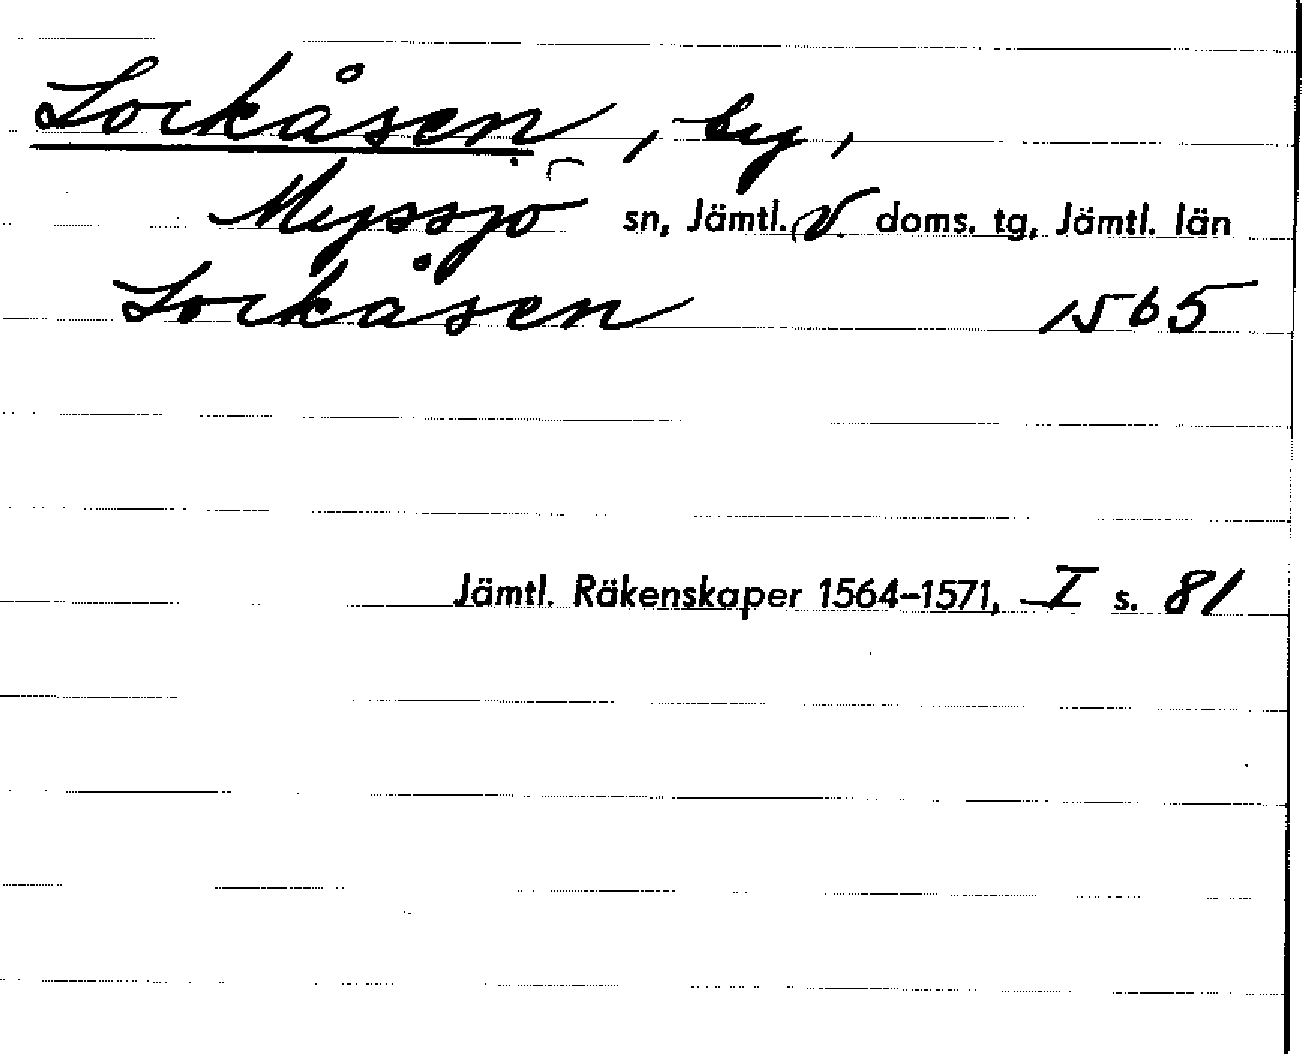 Lockåsen, by,
Myssjö sn, Jämtl. V. doms. tg, Jämtl. län
Lockåsen 1565
Jämtl. Räkenskaper 1564-1571, I s. 81